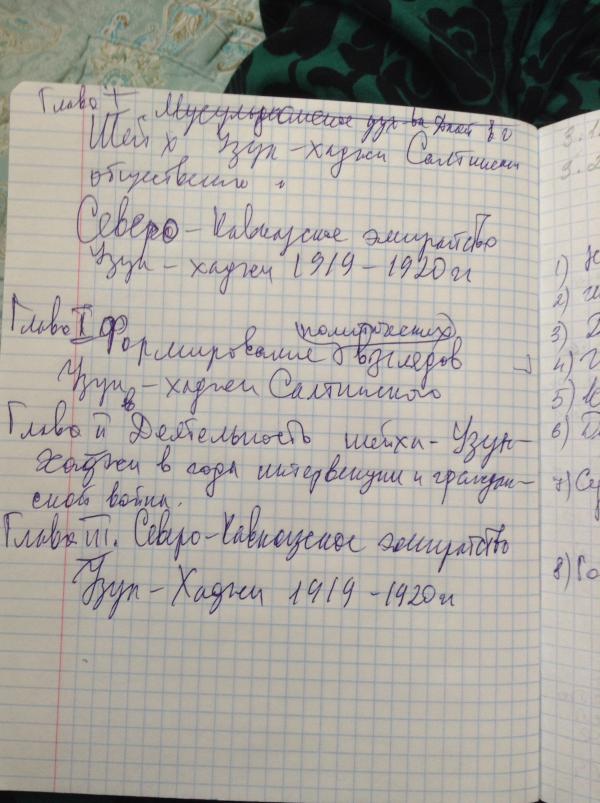 Глава I Мусульманское дух-ва
Шейх Узун-хаджи Салтински
общественно
Северо-Кавказское эмиратство
Узун-хаджи 1919-1920 гг
Глава I Формирование политических взглядов
Узун-хаджи Салтинского
Глава II Деятельность шейха-Узун-
Хаджи в годы интервенции и граждан-
ской войны.
Глава III. Северо-Кавказское эмиратство
Узун-Хаджи 1919-1920 гг
3.1
3.2
1)
2)
3)
4)
5)
6)
7) Су
8) Го